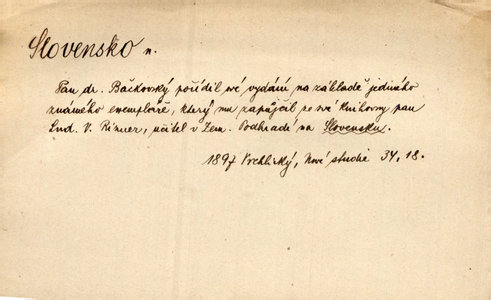 Slovensko n.
Pan dr. Bačkovský pořídil své vydání na základě jediného
známého exempláře, který mu zapůjčil ze své knihovny pan
Lud. V. Rizner, učitel v Zem. Podhradí na Slovensku.
1897 Vrchlický, Nové studie 34, 18.